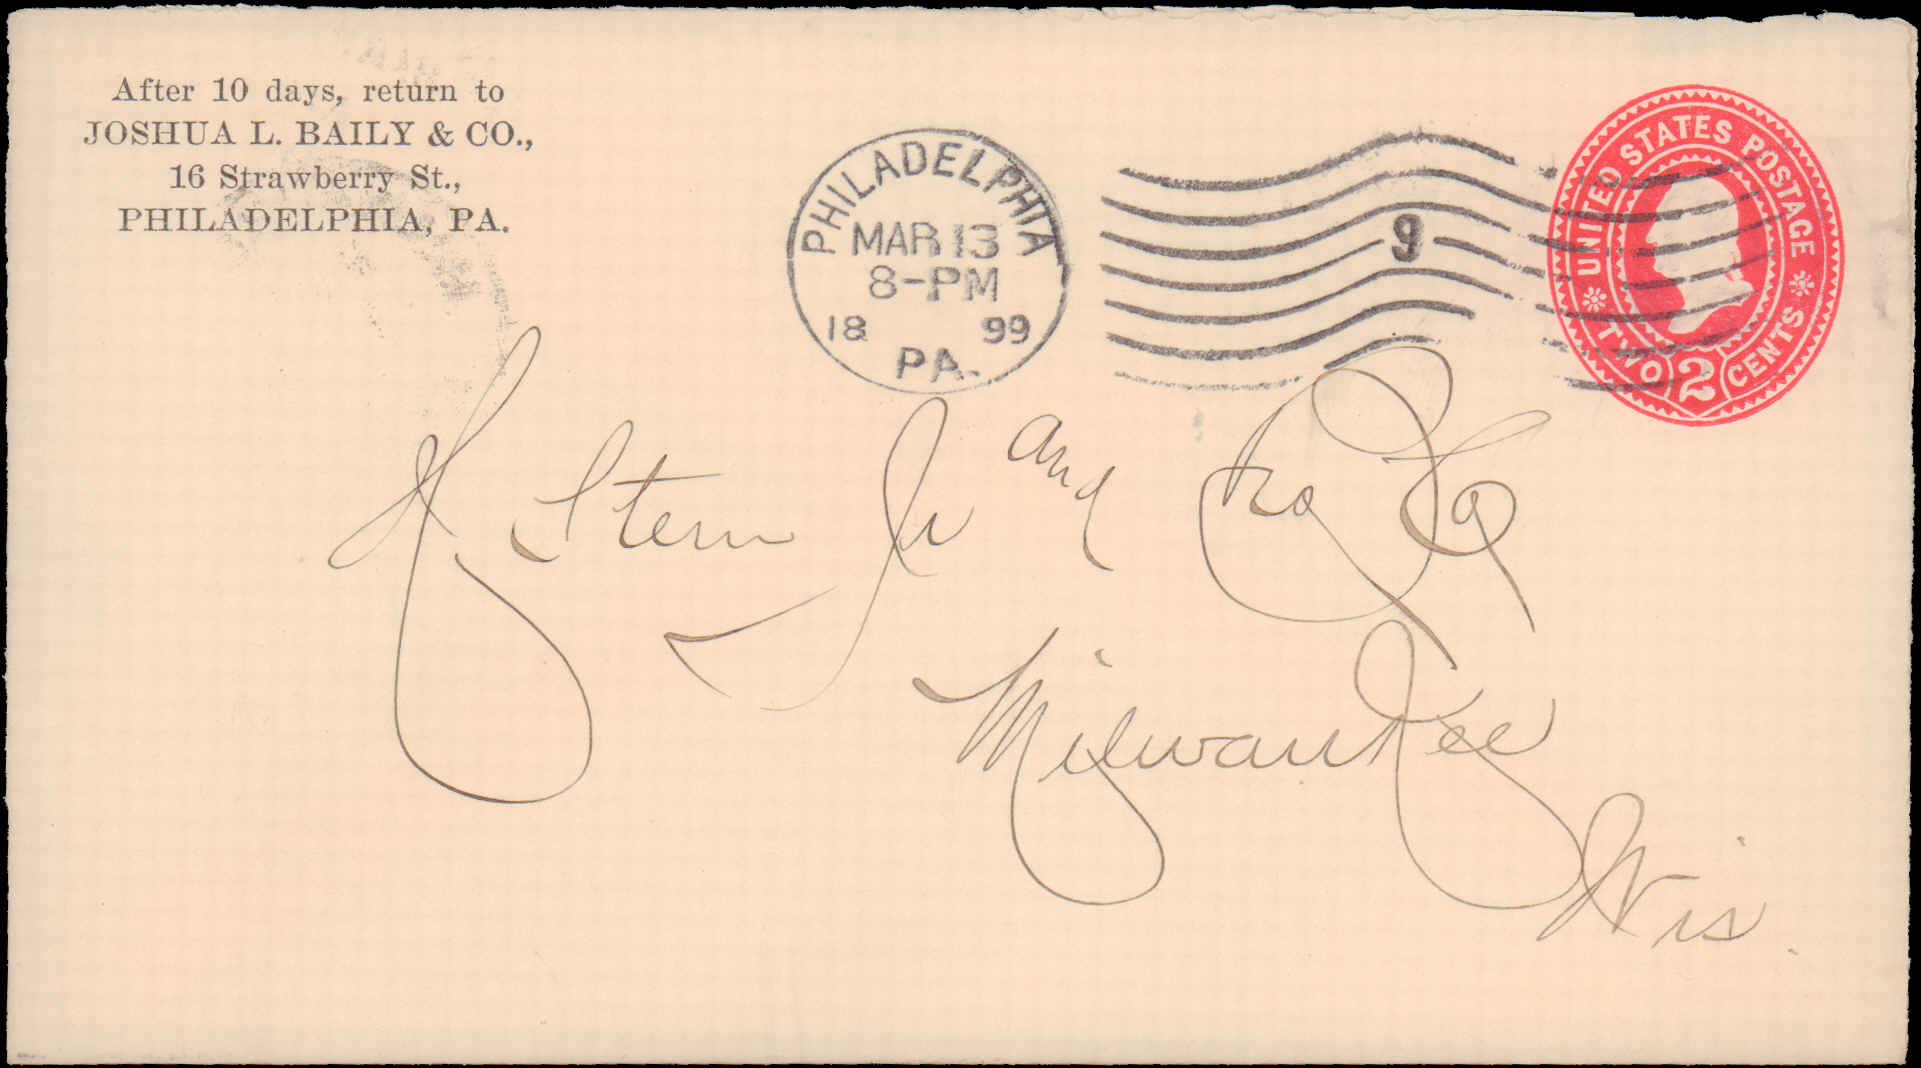 After 10 days, return to
JOSHUA L. BAILY & CO.,
16 Strawberry St.,
PHILADELPHIA, PA.
PHILADELPHIA
MAR 13
8-PM
18 99
PA.
9
UNITED STATES POSTAGE
TWO 2 CENTS
Stern Jr and Co
Milwaukee
Wis.